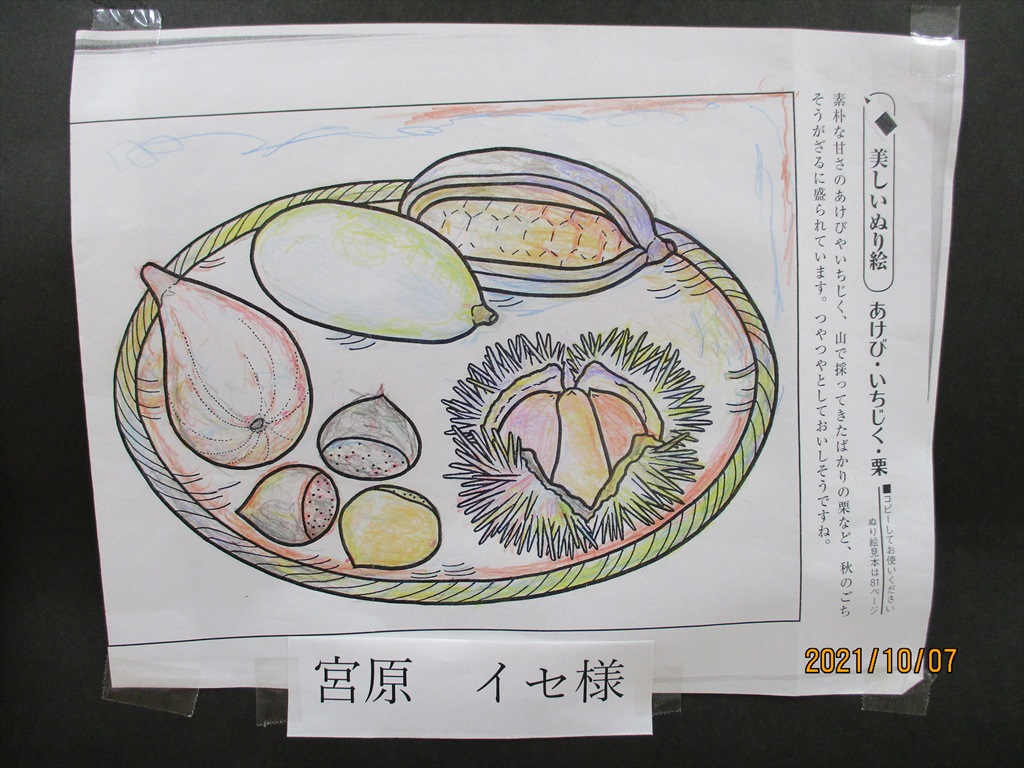 美しいぬり絵 あけび・いちじく・栗
■コピーしてお使いください
ぬり絵見本は81ページ
素朴な甘さのあけびやいちじく、山で採ってきたばかりの栗など、秋のごち
そうがざるに盛られています。つやつやとしておいしそうですね。
宮原 イセ様
2021/10/07